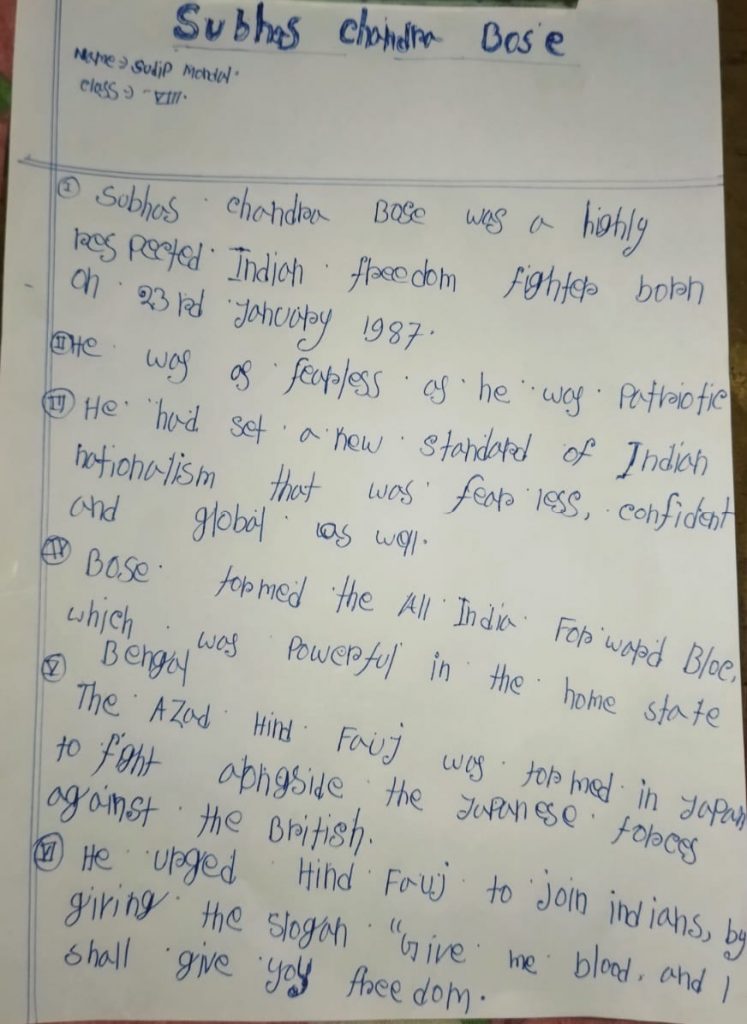 Subhas Chandra Bose
Name → Sudip Mondal.
Class → VIII.
I Subhas chandra Bose was a highly
respected Indian freedom fighter born
on 23rd January 1987.
II He was as fearless as he was Patriotic
III He had set a new standard of Indian
nationalism that was fearless, confident
and global as well.
IV Bose formed the All India Forward Bloc,
which was Powerful in the home state
Bengal
V The Azad Hind Fauj was formed in Japan
to fight alongside the Japanese forces
against the British.
VI He urged Hind Fauj to join indians, by
giring the slogan "Give me blood, and I
shall give you freedom.